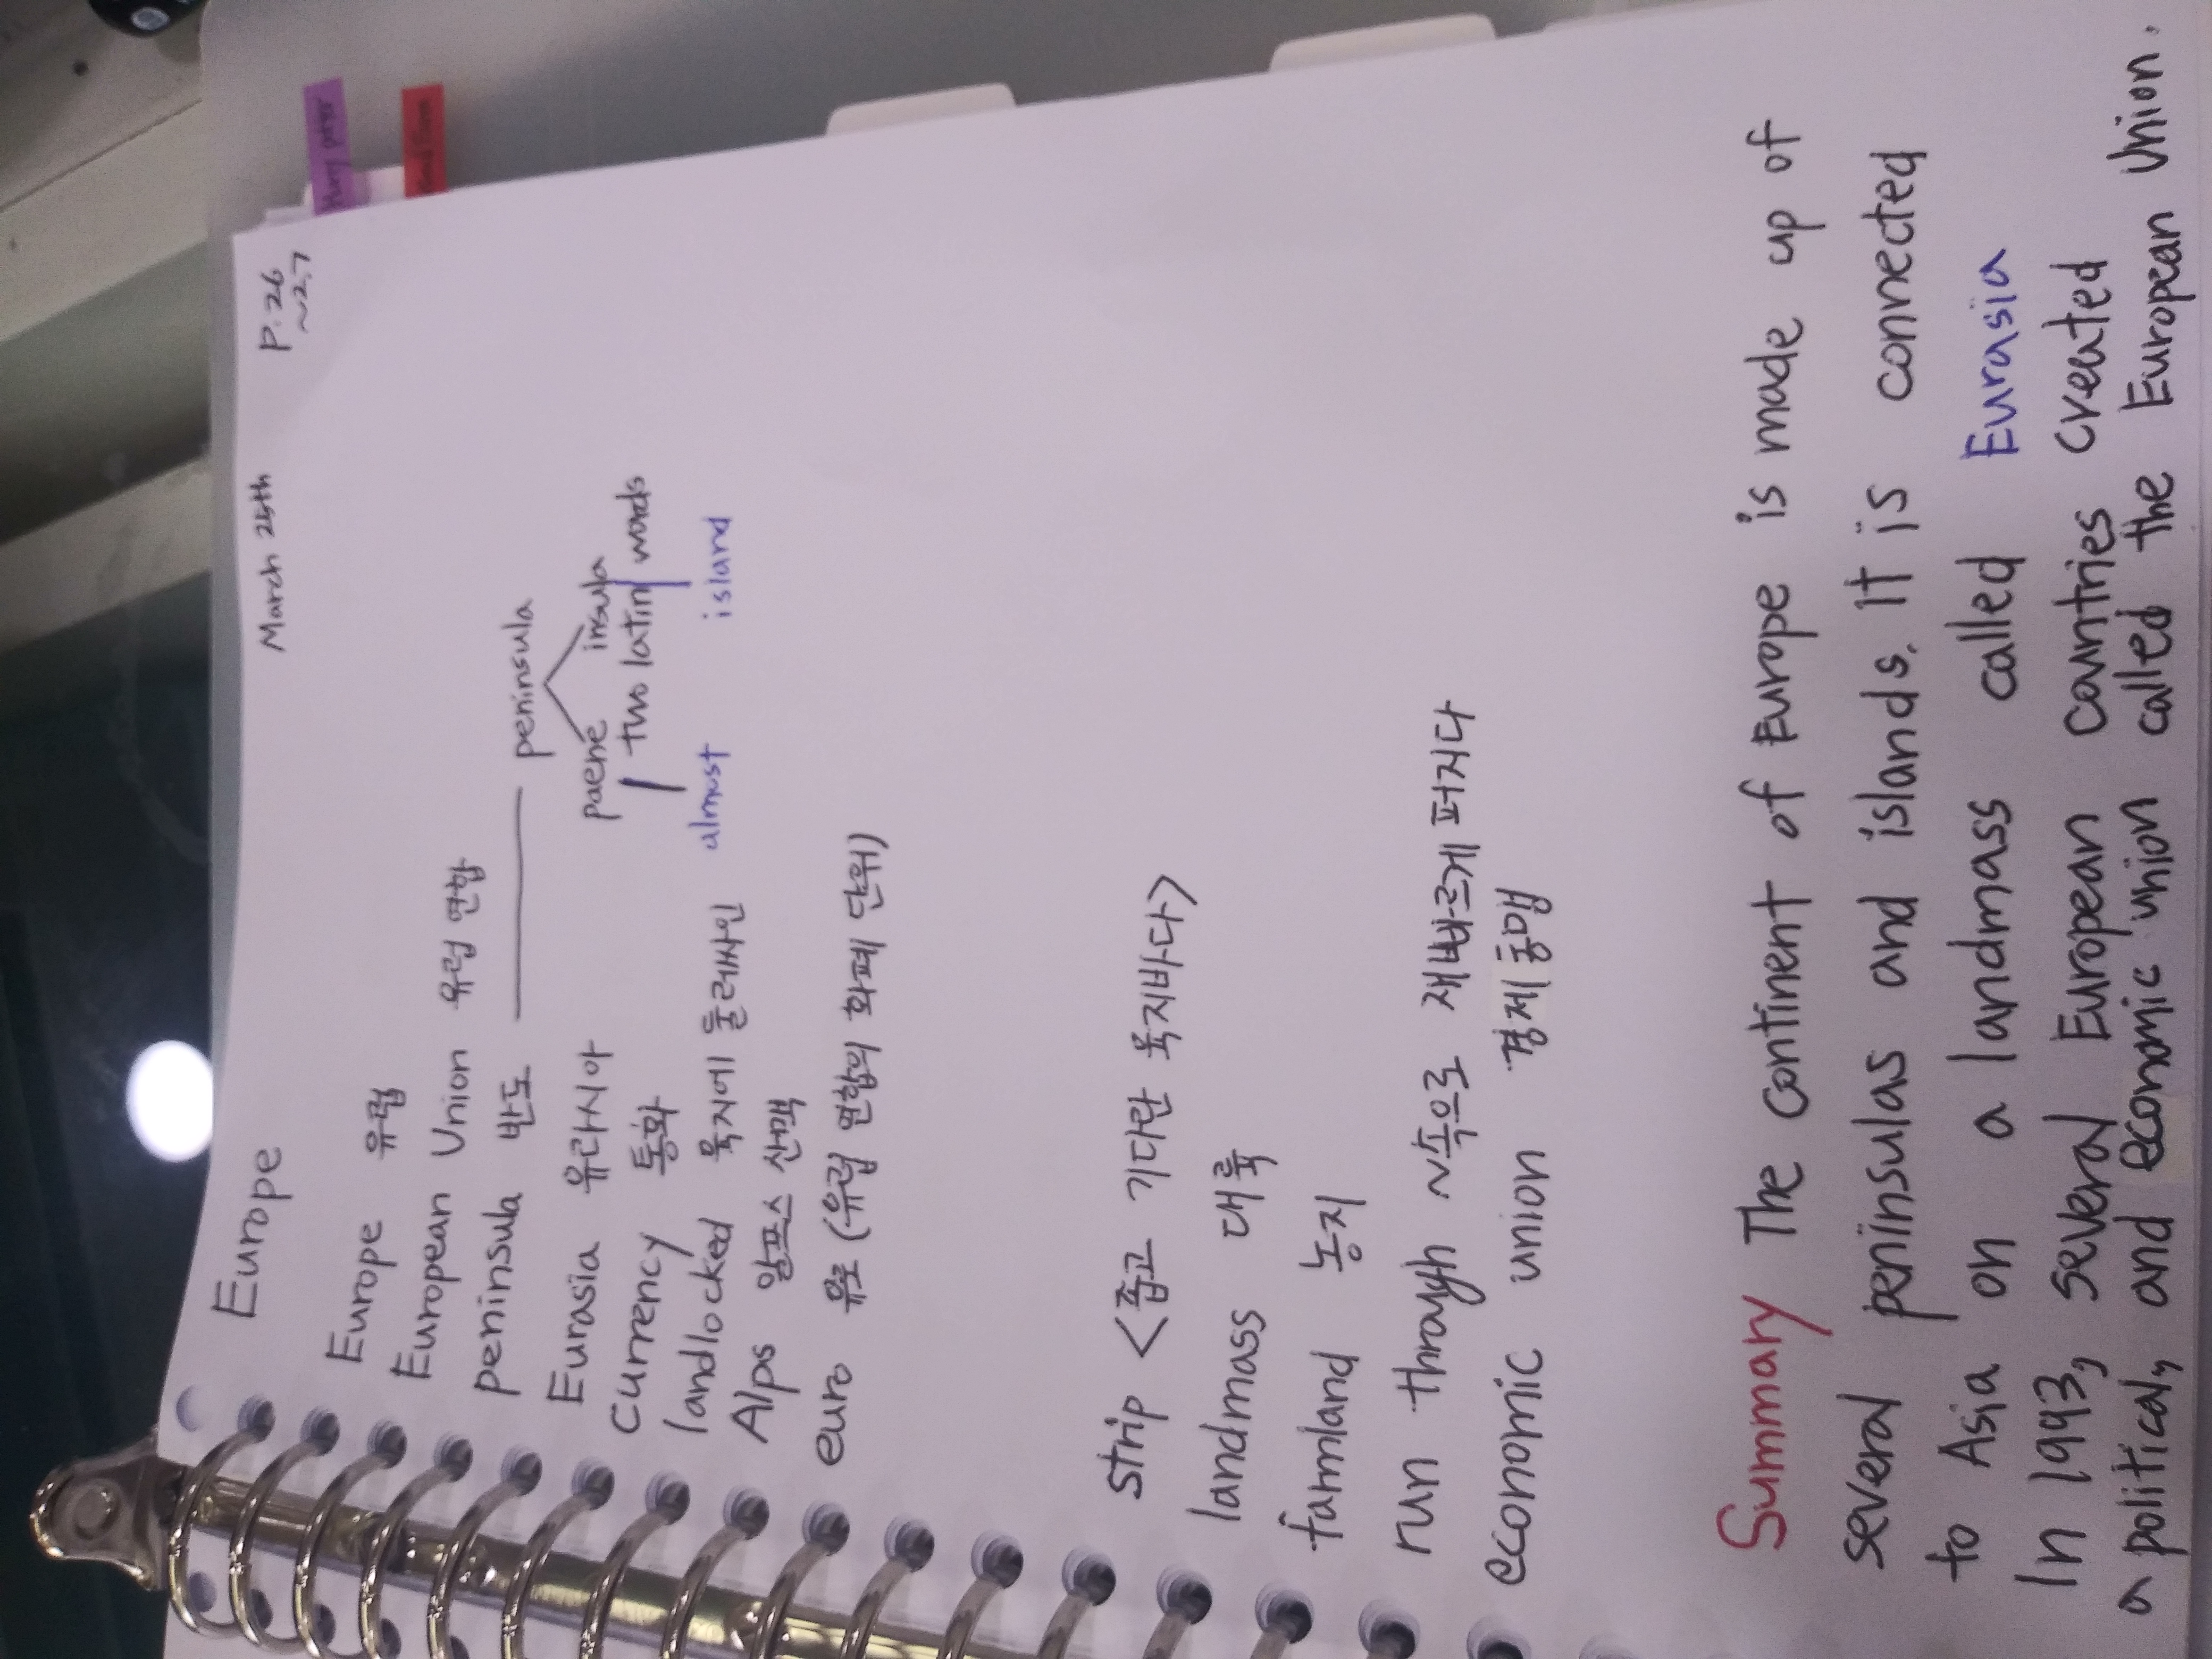 Europe March 25th P. 26
~27
Europe 유럽
European Union 유럽 연합
peninsula 반도 peninsula
Eurasia 유라시아 paene insula
currency 통화 two latin words
landlocked 육지에 둘러싸인 almost island
Alps 알프스 산맥
euro 유로 (유럽 연합의 화폐 단위)
strip <좁고 기다란 육지바다>
landmass 대륙
farmland 농지
run through ~속으로 재빠르게 퍼지다
economic union 경제 동맹
Summary The continent of Europe is made up of
several peninsulas and islands. It is connected
to Asia on a landmass called Eurasia
In 1993, several European countries created
a political, and economic union called the European Union.